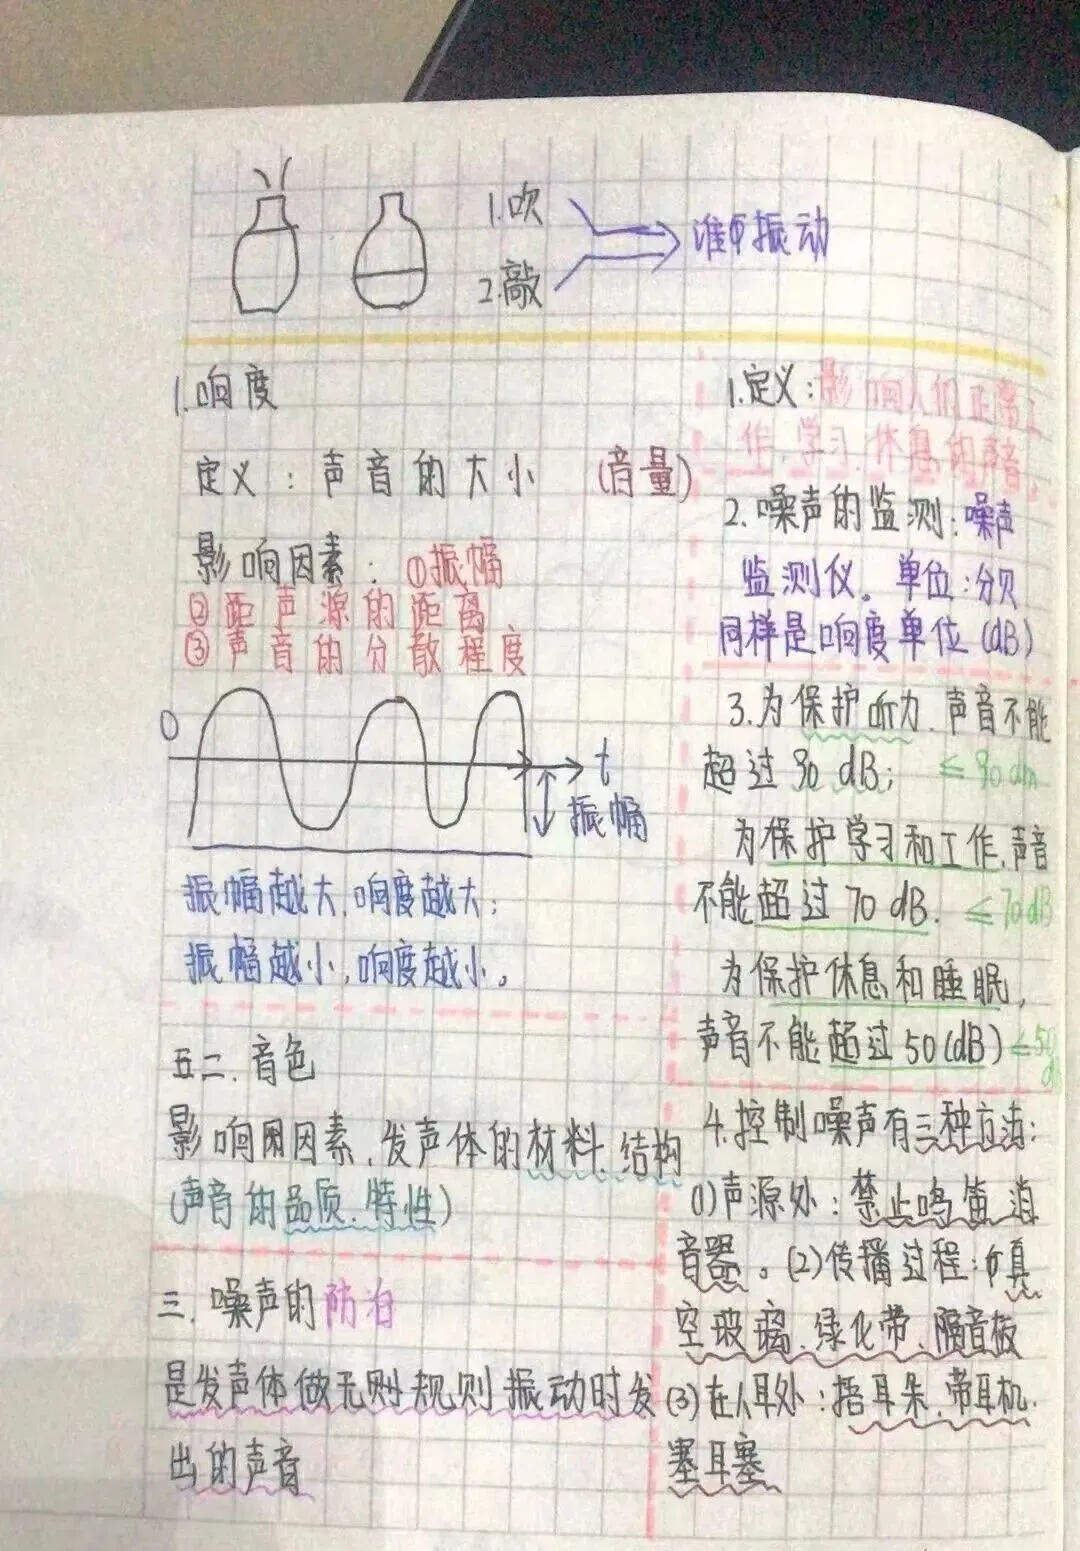 1.吹
2.敲
谁在振动
1.响度
定义:声音的大小 (音量)
影响因素:①振幅
②距声源的距离
③声音的分散程度
0
t
振幅
振幅越大,响度越大;
振幅越小,响度越小。
二.音色
影响因素,发声体的材料、结构
(声音的品质、特性)
三.噪声的防治
是发声体做无规则振动时发
出的声音
1.定义:影响人们正常工
作、学习、休息的声音。
2.噪声的监测:噪声
监测仪。单位:分贝
同样是响度单位(dB)
3.为保护听力,声音不能
超过90 dB; ≤90dm
为保护学习和工作,声音
不能超过70 dB. ≤70dB
为保护休息和睡眠,
声音不能超过50(dB) ≤50
4.控制噪声有三种方法:
(1)声源处:禁止鸣笛、消
音器。(2)传播过程:真
空玻璃、绿化带、隔音板
(3)在人耳处:捂耳朵、带耳机、
塞耳塞